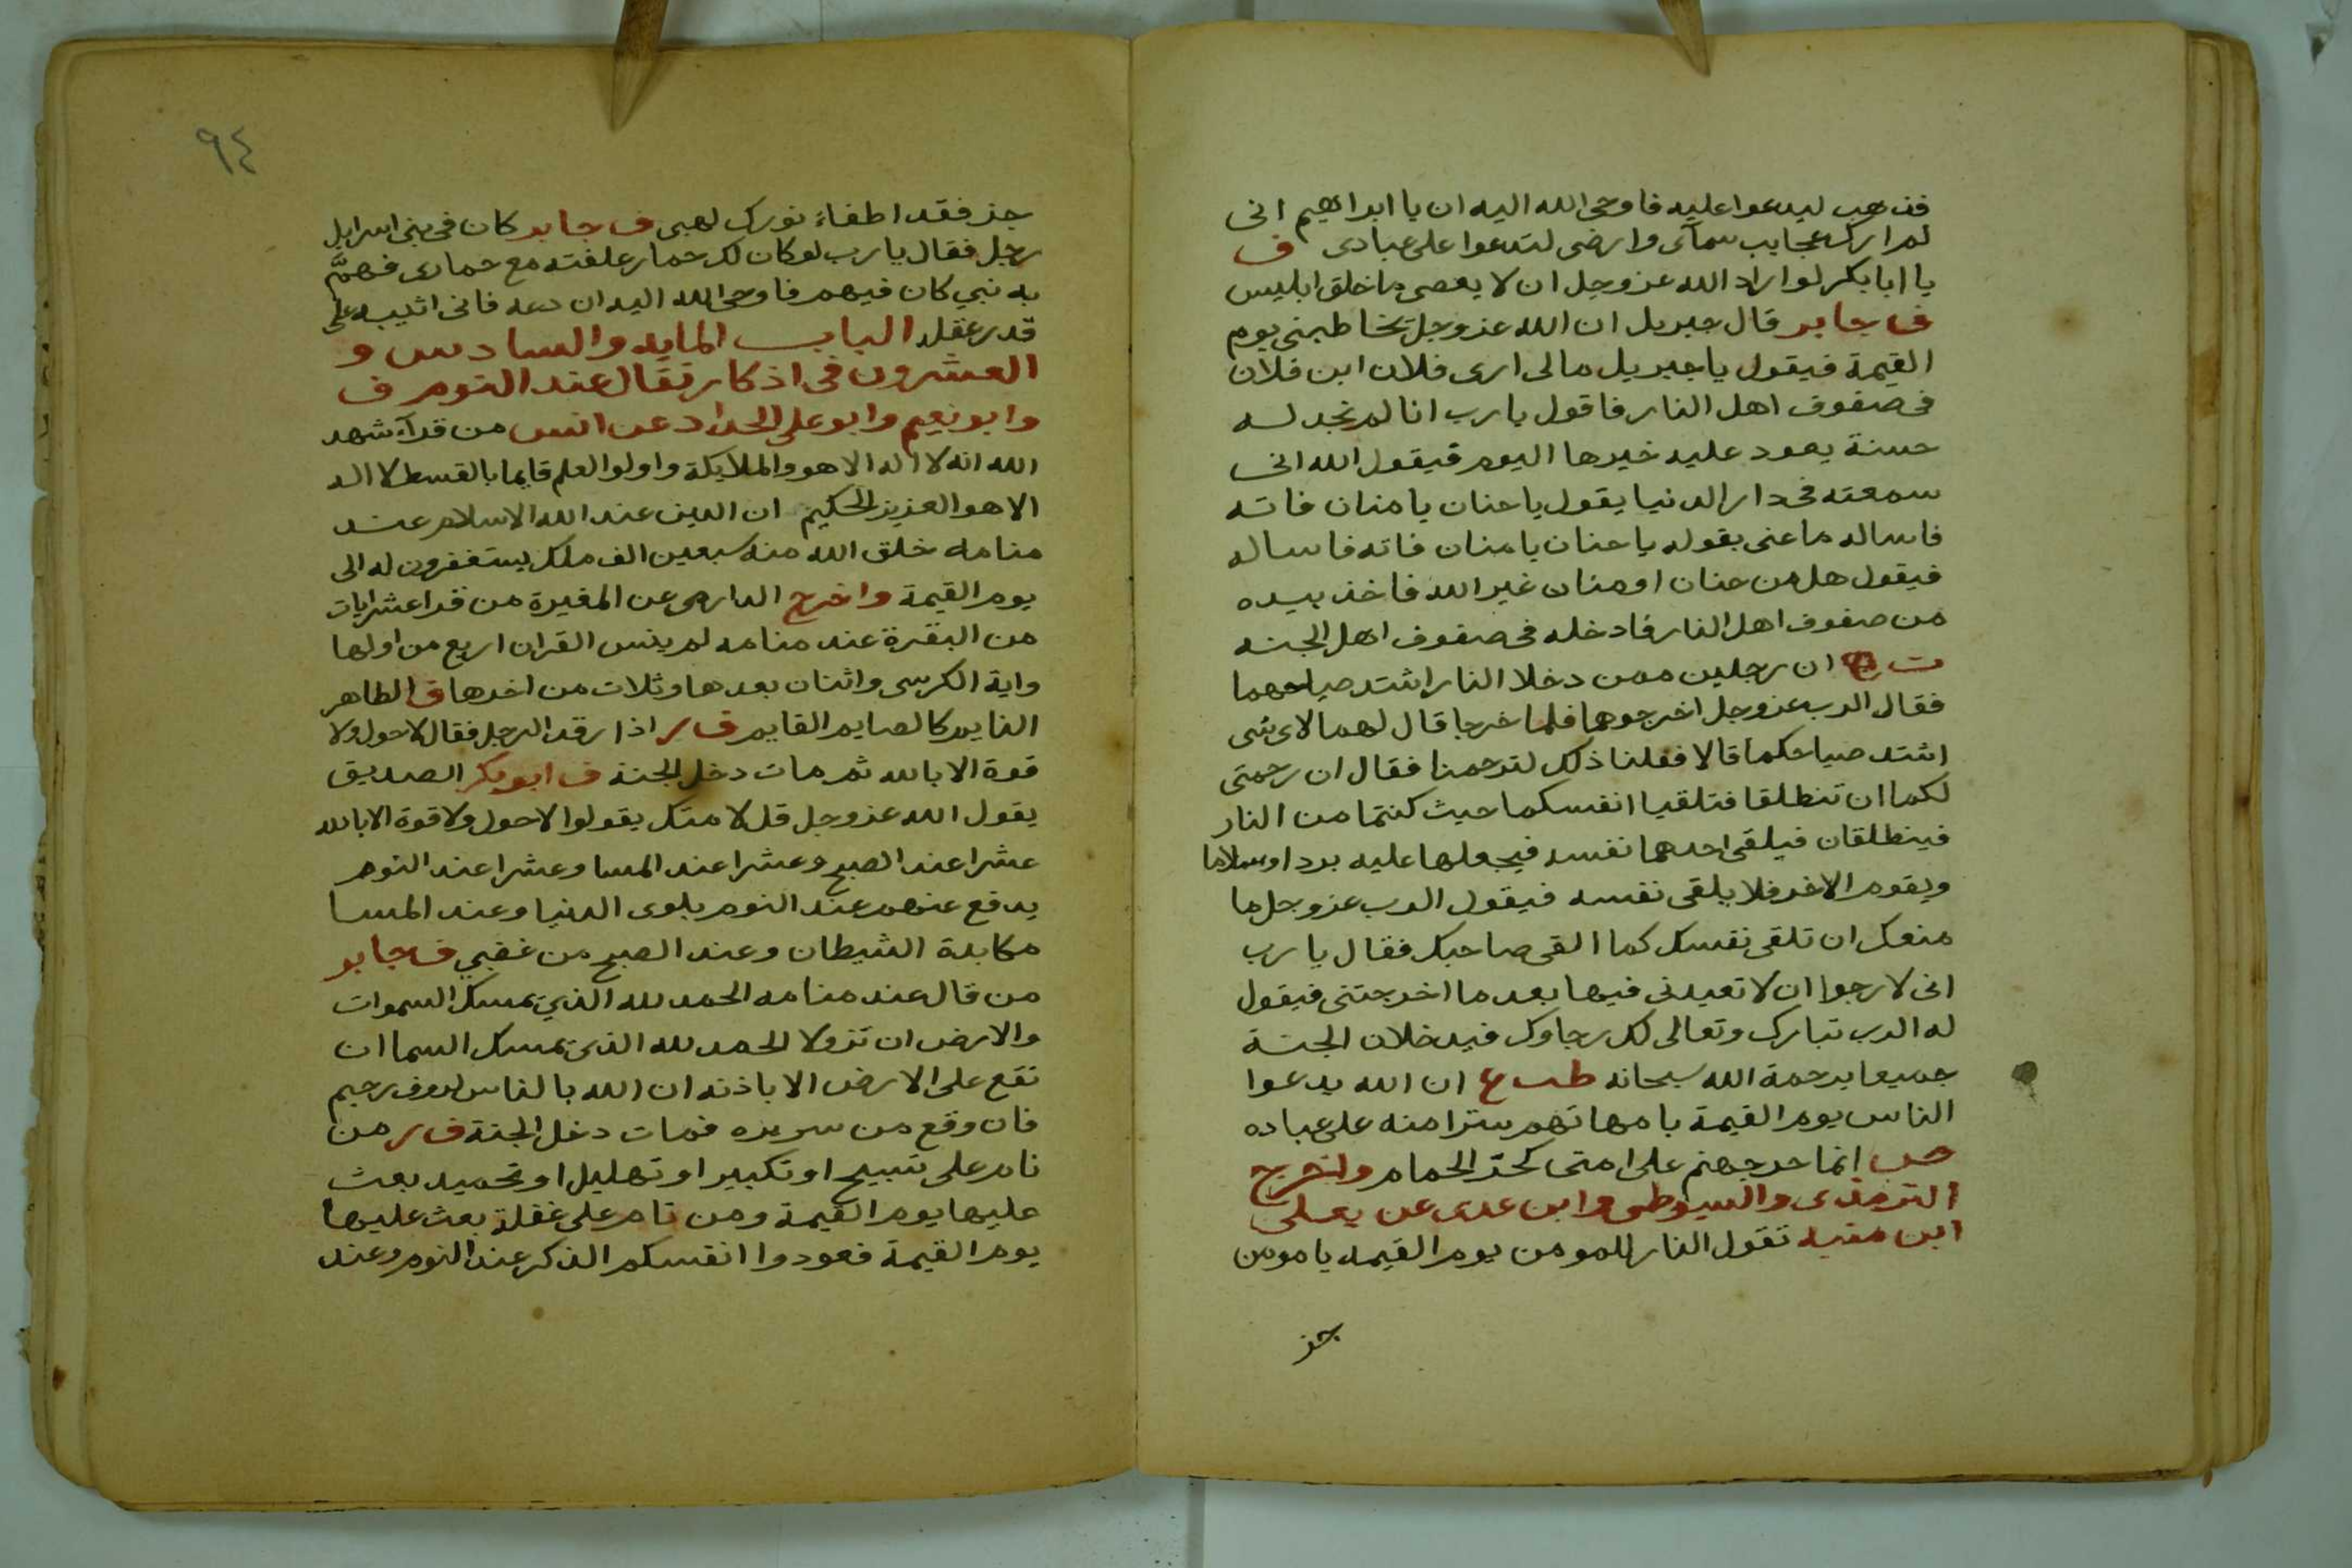 فذهب ليدعوا عليه فاوحى الله اليه ان يا ابراهيم انى
لم ارك عجايب سمآى وارضى لتدعوا على عبادى ف
يا ابا بكر لو اراد الله عزوجل ان لا يعصى ما خلق ابليس
ف جابر قال جبريل ان الله عزوجل يخاطبنى يوم
القيمة فيقول يا جبريل مالى ارى فلان ابن فلان
فى صفوف اهل النار فاقول يا رب انا لم نجد له
حسنة يعود عليه خيرها اليوم فيقول الله انى
سمعته فى دار الدنيا يقول يا حنان يا منان فاته
فاساله ما عنى بقوله يا حنان يا منان فاته فاساله
فيقول هل من حنان او منان غير الله فاخذ بيده
من صفوف اهل النار فادخله فى صفوف اهل الجنه
ت ان رجلين ممن دخلا النار اشتد صياحهما
فقال الرب عزوجل اخرجوهما فلما خرجا قال لهما لاى شى
اشتد صياحكما قالا فعلنا ذلك لترحمنا فقال ان رحمتى
لكما ان تنطلقا فتلقيا انفسكما حيث كنتما من النار
فينطلقان فيلقى احدهما نفسه فيجعلها عليه بردا وسلاما
ويقوم الاخر فلا يلقى نفسه فيقول الرب عزوجل ما
منعك ان تلقى نفسك كما القى صاحبك فقال يا رب
انى لارجوا ان لا تعيدنى فيها بعد ما اخرجتنى فيقول
له الرب تبارك وتعالى لك رجاوك فيدخلان الجنة
جميعا برحمة الله سبحانه طب ع ان الله يدعوا
الناس يوم القيمة بامهاتهم سترا منه على عباده
انما حر جهنم على امتى كحر الحمام واخرج
الترمذى والسيوطى وابن عدى عن يعلى
ابن منبه تقول النار للمومن يوم القيمه يا مومن
جز
٩٤
جز فقد اطفاء نورك لهبى ف جابر كان فى بنى اسرايل
رجل فقال يا رب لو كان لك حمار علفته مع حمارى فهمّ
به نبي كان فيهم فاوحى الله اليه ان دعه فانى اثيبه على
قدر عقله الباب المايه والسادس و
العشرون فى اذكار تقال عند النوم ف
وابو نعيم وابو على الحداد عن انس من قرآء شهد
الله انه لا اله الا هو والملايكة واولوا العلم قايما بالقسط لا اله
الا هو العزيز الحكيم ان الدين عند الله الاسلام عند
منامه خلق الله منه سبعين الف ملك يستغفرون له الى
يوم القيمة واخرج الدارمى عن المغيرة من قرا عشر ايات
من البقرة عند منامه لم ينس القران اربع من اولها
واية الكرسى واثنان بعدها وثلاث من اخرها ف الطاهر
النايم كالصايم القايم ف ر اذا رقد الرجل فقال لا حول ولا
قوة الا بالله ثم مات دخل الجنة ف ابو بكر الصديق
يقول الله عزوجل قل لامتك يقولوا لا حول ولا قوة الا بالله
عشرا عند الصبح وعشرا عند المسا وعشرا عند النوم
يدفع عنهم عند النوم بلوى الدنيا وعند المسا
مكايدة الشيطان وعند الصبح من غضبي ف جابر
من قال عند منامه الحمد لله الذي يمسك السموات
والارض ان تزولا الحمد لله الذى يمسك السما ان
تقع على الارض الا باذنه ان الله بالناس لروف رحيم
فان وقع من سريره فمات دخل الجنة ف ر من
نام على تسبيح او تكبير او تهليل او تحميد بعث
عليها يوم القيمة ومن نام على غفلة بعث عليها
يوم القيمة فعودوا انفسكم الذكر عند النوم وعند